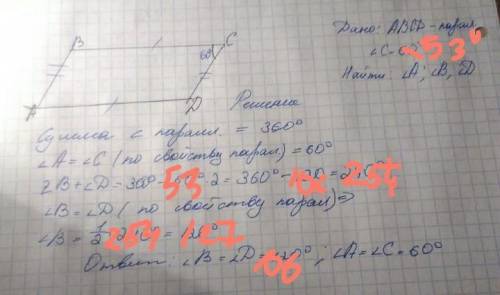 B
C
60°
A
D
Дано: ABCD-парал.
∠C=60° 53°
Найти: ∠A; ∠B, ∠D
Решение
Сумма с паралл. = 360°
∠A=∠C (по свойству парал) = 60°
∠B+∠D=360°- 53 ·2=360°- 254
∠B=∠D (по свойству парал)=>
∠B= 1/2 254 = 127
Ответ: ∠B=∠D= 106 °; ∠A=∠C=60°